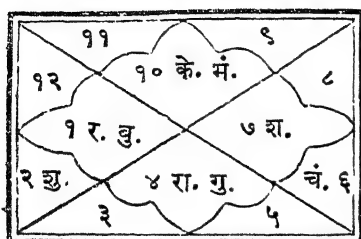 ११ ९
१२ १० के. मं. ८
१ र. बु. ७ श.
२ शु. ४ रा. गु. चं. ६
३ ५